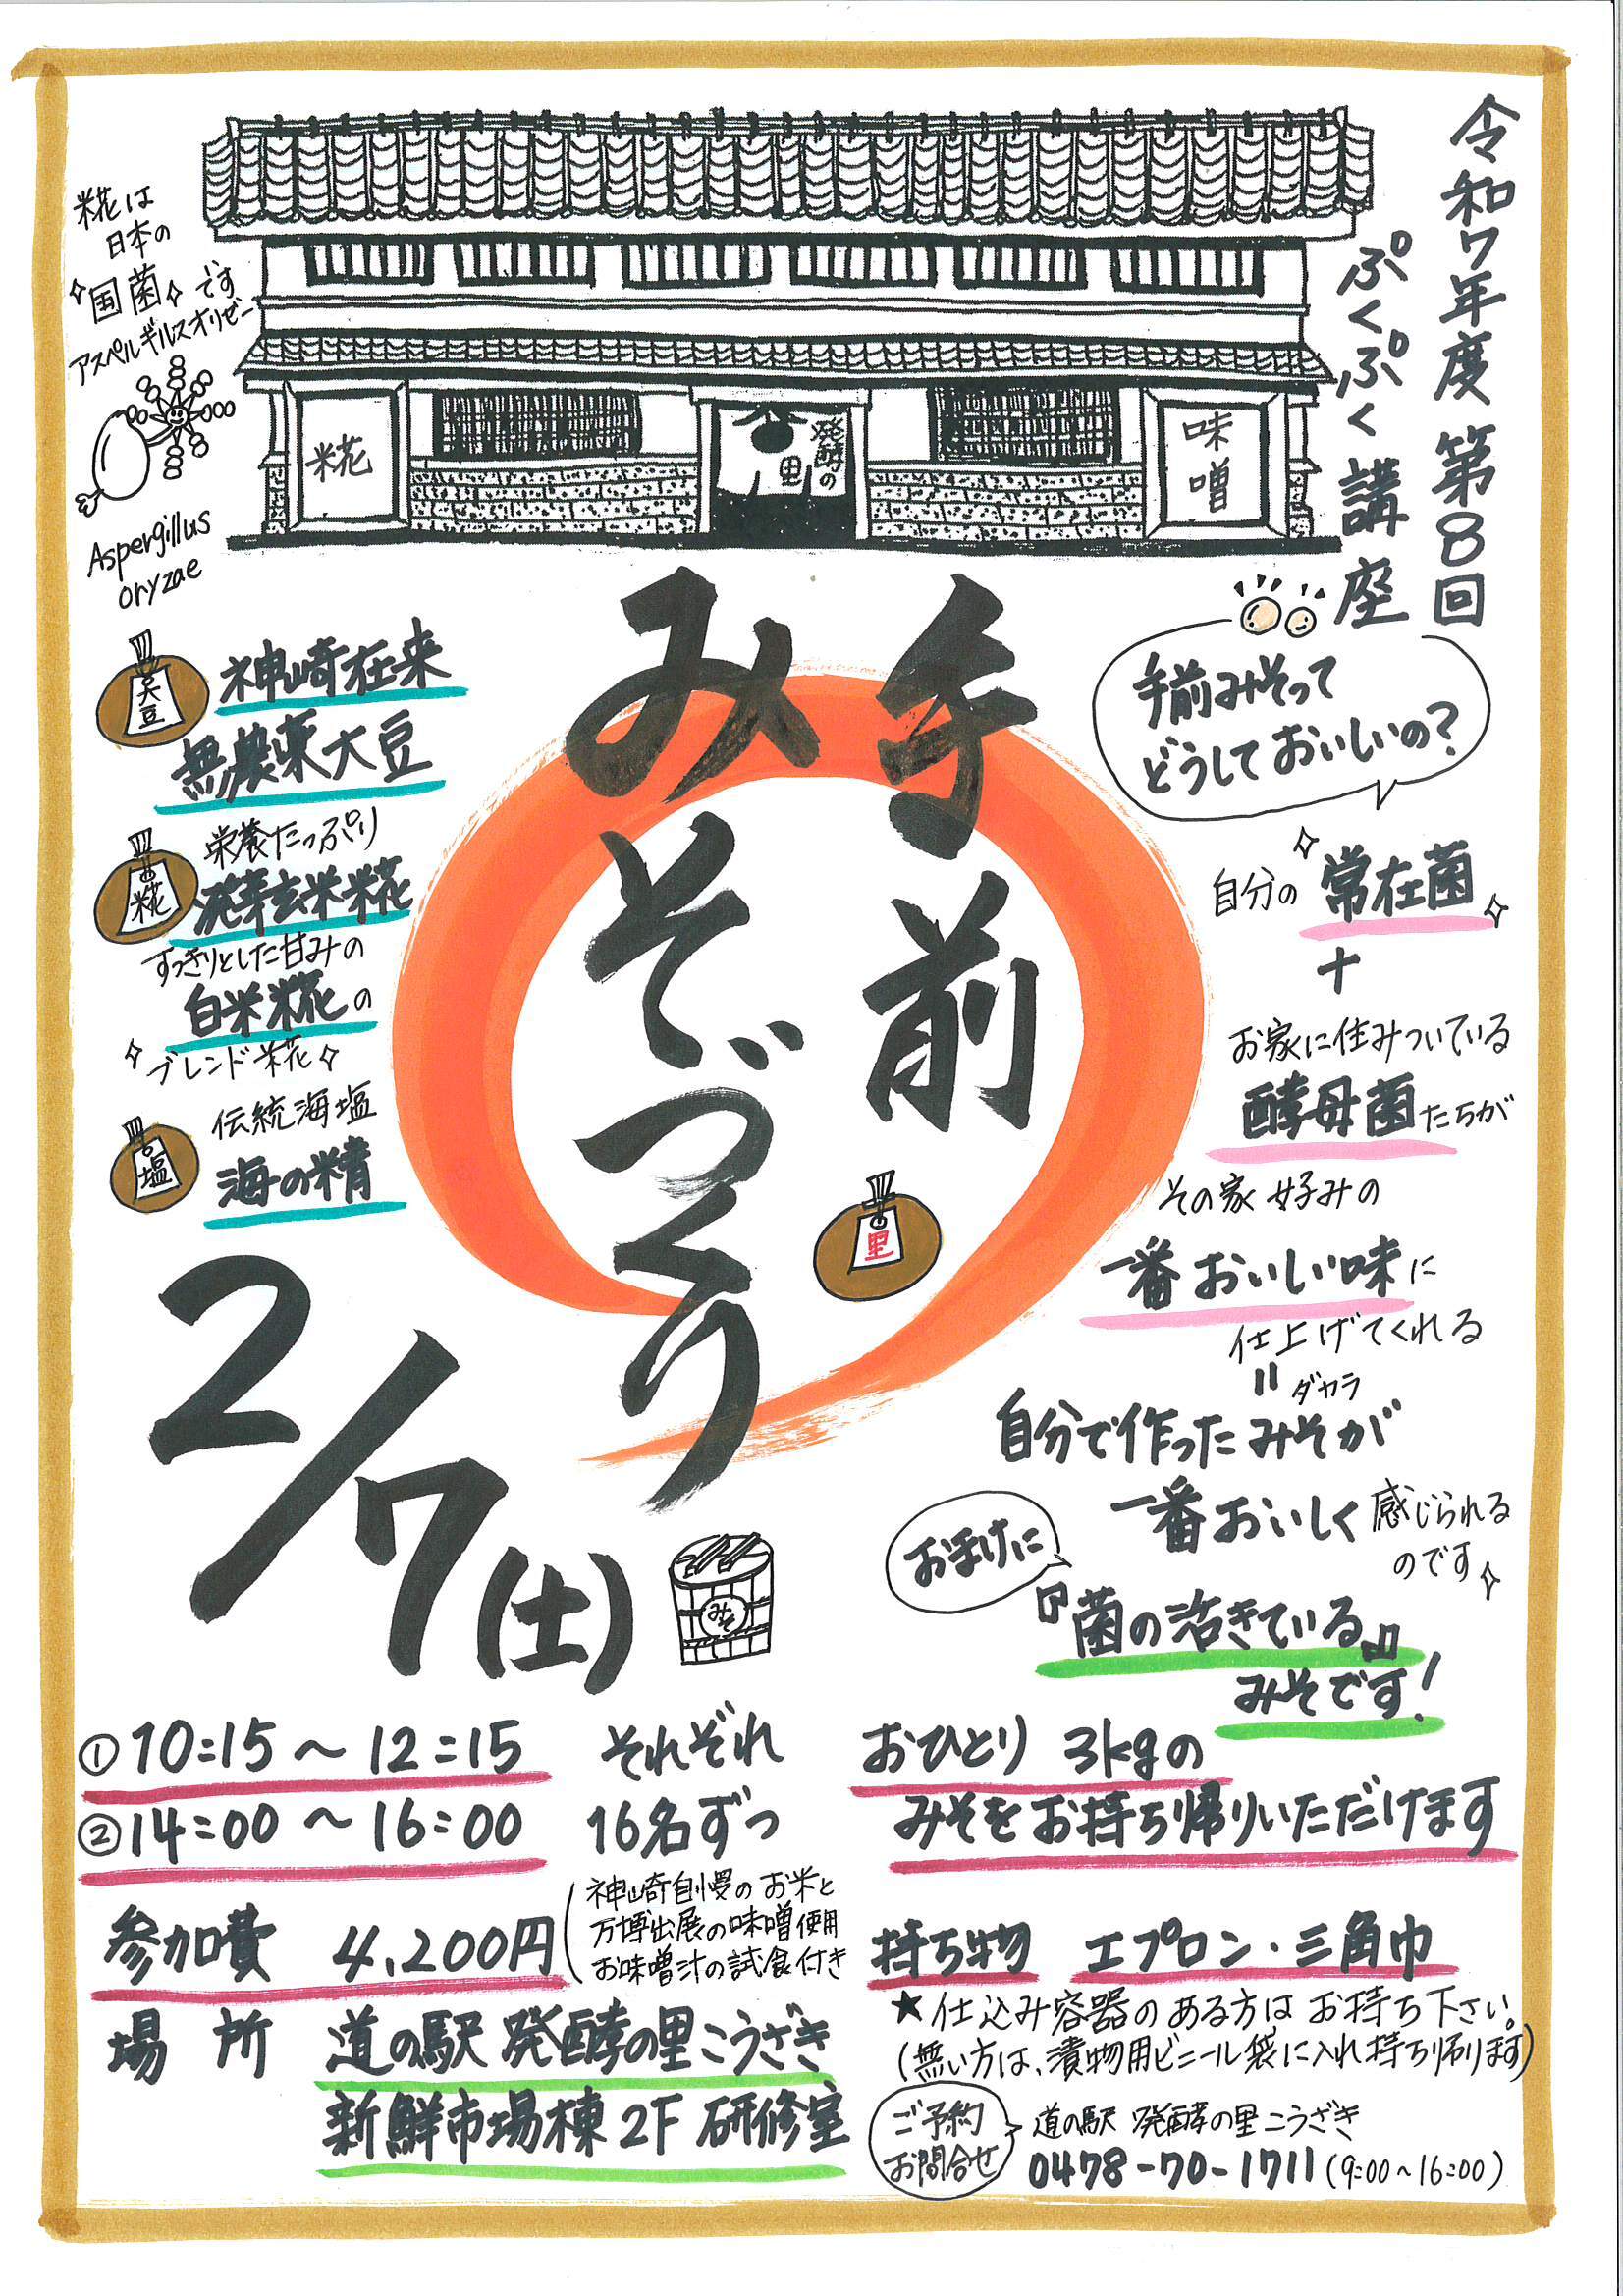 令和7年度 第8回
ぷくぷく講座
糀は
日本の
国菌です
アスペルギルスオリゼー
Aspergillus
oryzae
糀
発酵の
里
味噌
手前
みそづくり
里
大豆
神崎在来
無農薬大豆
糀
栄養たっぷり
発芽玄米糀
すっきりとした甘みの
白米糀の
ブレンド糀
塩
伝統海塩
海の精
2/7(土)
みそ
手前みそって
どうしておいしいの?
自分の常在菌
+
お家に住みついている
酵母菌たちが
その家好みの
一番おいしい味に
仕上げてくれる
〃ダカラ
自分で作ったみそが
一番おいしく感じられる
のです
おまけに
『菌の活きている』
みそです!
①10:15〜12:15
②14:00〜16:00
それぞれ
16名ずつ
おひとり 3kgの
みそをお持ち帰りいただけます
参加費 4,200円
(神崎自慢のお米と
万博出展の味噌使用
お味噌汁の試食付き
持ち物 エプロン・三角巾
★仕込み容器のある方はお持ち下さい。
(無い方は、漬物用ビニール袋に入れ持ち帰ります)
場所 道の駅 発酵の里こうざき
新鮮市場棟 2F 研修室
ご予約
お問合せ
道の駅 発酵の里こうざき
0478-70-1711(9:00〜16:00)